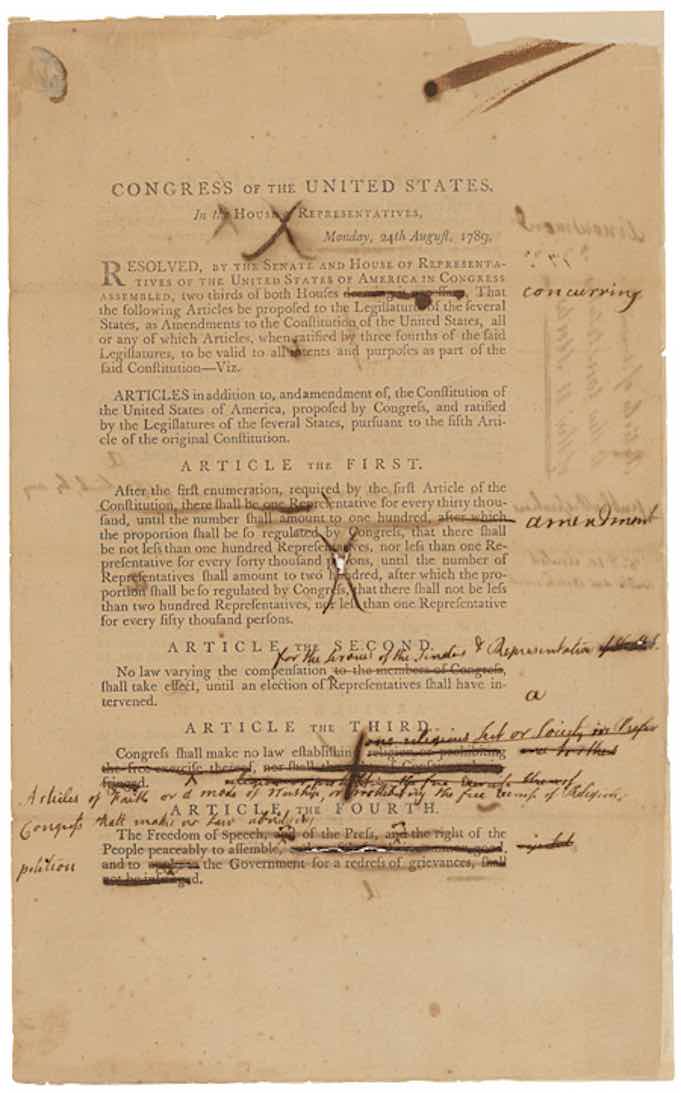 CONGRESS OF THE UNITED STATES.
In the HOUSE of REPRESENTATIVES,
Monday, 24th Auguſt, 1789,
RESOLVED, BY THE SENATE AND HOUSE OF REPRESENTA-
TIVES OF THE UNITED STATES OF AMERICA IN CONGRESS
ASSEMBLED, two thirds of both Houſes That
concurring
the following Articles be propoſed to the Legiſlatures of the ſeveral
States, as Amendments to the Conſtitution of the United States, all
or any of which Articles, when ratified by three fourths of the ſaid
Legiſlatures, to be valid to all intents and purpoſes as part of the
ſaid Conſtitution—Viz.
ARTICLES in addition to, and amendment of, the Conſtitution of
the United States of America, propoſed by Congreſs, and ratified
by the Legiſlatures of the ſeveral States, purſuant to the fifth Arti-
cle of the original Conſtitution.
ARTICLE THE FIRST.
After the firſt enumeration, required by the firſt Article of the
Conſtitution, there ſhall be one Repreſentative for every thirty thou-
ſand, until the number ſhall amount to one hundred, after which
amendment
the proportion ſhall be ſo regulated by Congreſs, that there ſhall
be not leſs than one hundred Repreſentatives, nor leſs than one Re-
preſentative for every forty thouſand perſons, until the number of
Repreſentatives ſhall amount to two hundred, after which the pro-
portion ſhall be ſo regulated by Congreſs, that there ſhall not be leſs
than two hundred Repreſentatives, nor leſs than one Repreſentative
for every fifty thouſand perſons.
ARTICLE THE SECOND.
for the ſervices of the Senate & Repreſentatives
No law varying the compenſation to the members of Congreſs,
ſhall take effect, until an election of Repreſentatives ſhall have in-
a
tervened.
ARTICLE THE THIRD.
one religious Sect or Society in
Congreſs ſhall make no law eſtabliſhing religion or prohibiting
the free exerciſe thereof, nor ſhall the
fringed.
Articles of Faith or a mode of Worſhip, or prohibiting the free exerciſe of Religion,
ARTICLE THE FOURTH.
Congreſs ſhall make no Law abridging
The Freedom of Speech, and of the Preſs, and the right of the
People peaceably to aſſemble,
and to the Government for a redreſs of grievances, ſhall
petition
not be infringed.